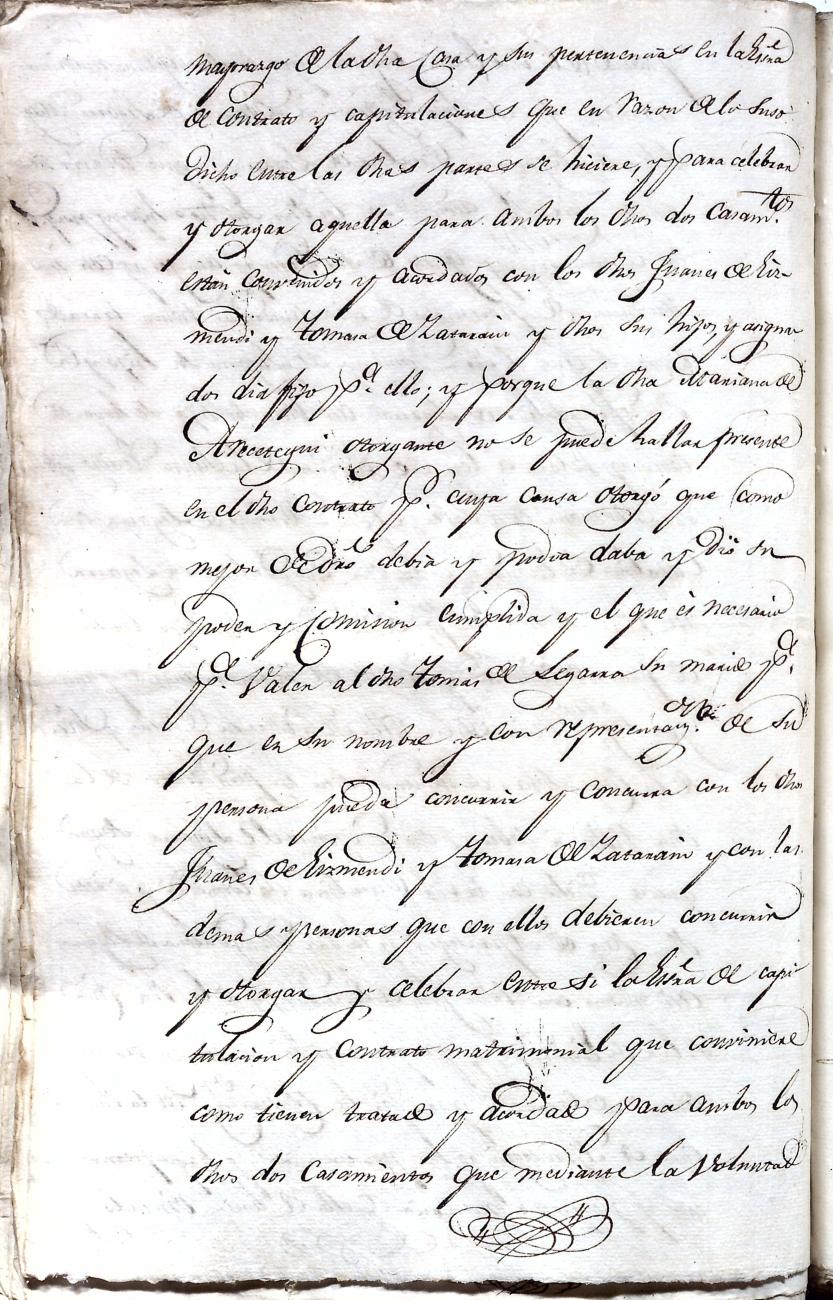 mayorazgo de la dha Casa y sus pertenencias en la Esſra
de Contrato y capitulaciones que en razon de lo suso
dicho entre las dhas partes se hiciere, y para celebrar
y otorgar aquella para ambos los dhos dos Casamtos
están convenidos y acordados con los dhos Juanes de Liz-
mendi y Tomasa de Zatarain y dhos sus hijos, y asigna
dos dia fijo pa. ello; y porque la dha Mariana de
Arecetegui otorgante no se puede hallar presente
en el dho Contrato pr. cuya causa otorgó que como
mejor de dro debia y podia daba y dió su
poder y Comision cumplida y el que es necesario
pa. Valer al dho Tomás de Legarra su marido pa.
que en su nombre y con representacion de su
persona pueda concurrir y concurra con los dhos
Juanes de Lizmendi y Tomasa de Zatarain y con las
demas personas que con ellos debieren concurrir
y otorgar y celebrar entre si la Esſra de capi
tulacion y Contrato matrimonial que conviniere
como tienen tratado y acordado para ambos los
dhos dos Casamientos que mediante la Voluntad